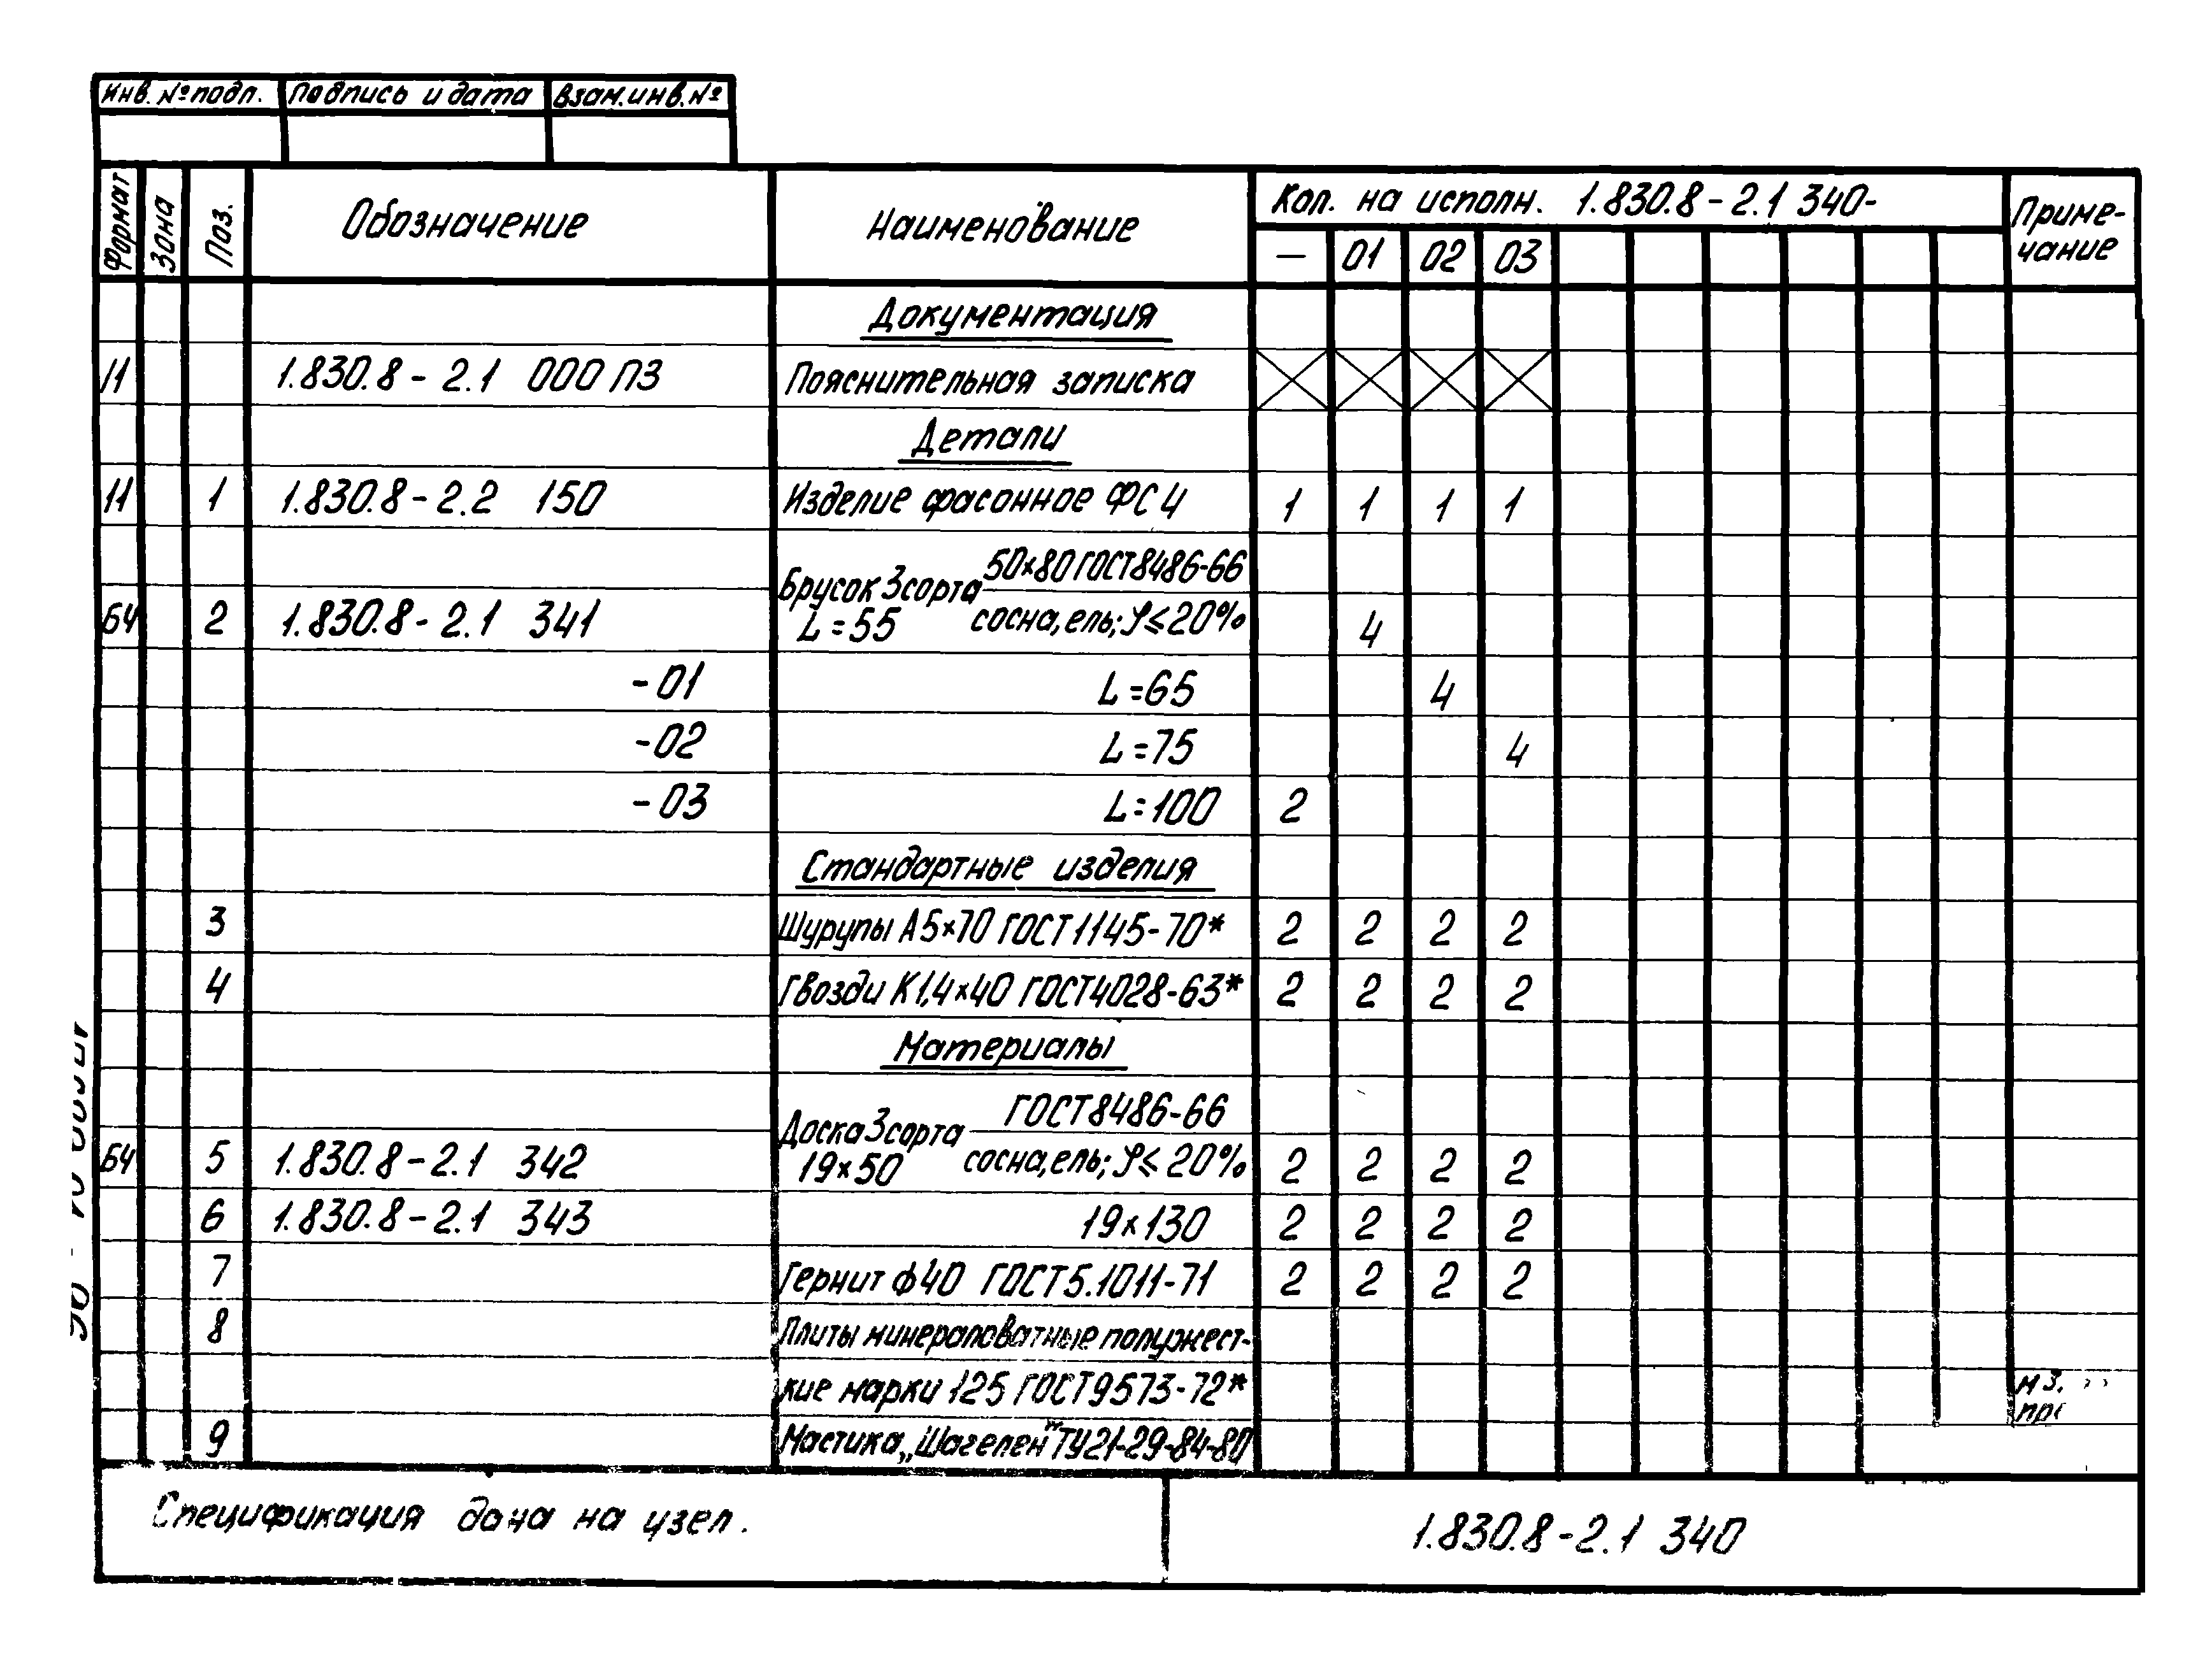 Инв. № подл. Подпись и дата Взам. инв. №
Формат Зона Поз. Обозначение Наименование Кол. на исполн. 1.830.8-2.1 340- Приме-
чание
— 01 02 03
Документация
11 1.830.8-2.1 000 ПЗ Пояснительная записка
Детали
11 1 1.830.8-2.2 150 Изделие фасонное ФС4 1 1 1 1
Брусок 3 сорта 50×80 ГОСТ 8486-66
БЧ 2 1.830.8-2.1 341 L=55 сосна, ель; φ≤20% 4
-01 L=65 4
-02 L=75 4
-03 L=100 2
Стандартные изделия
3 Шурупы А5×70 ГОСТ 1145-70* 2 2 2 2
4 Гвозди К1,4×40 ГОСТ 4028-63* 2 2 2 2
Материалы
Доска 3 сорта ГОСТ 8486-66
БЧ 5 1.830.8-2.1 342 19×50 сосна, ель; φ≤20% 2 2 2 2
6 1.830.8-2.1 343 19×130 2 2 2 2
7 Гернит ф40 ГОСТ 5.1011-71 2 2 2 2
8 Плиты минераловатные полужест-
кие марки 125 ГОСТ 9573-72* м3.
9 Мастика „Шагелен" ТУ21-29-84-80
Спецификация дана на узел. 1.830.8-2.1 340